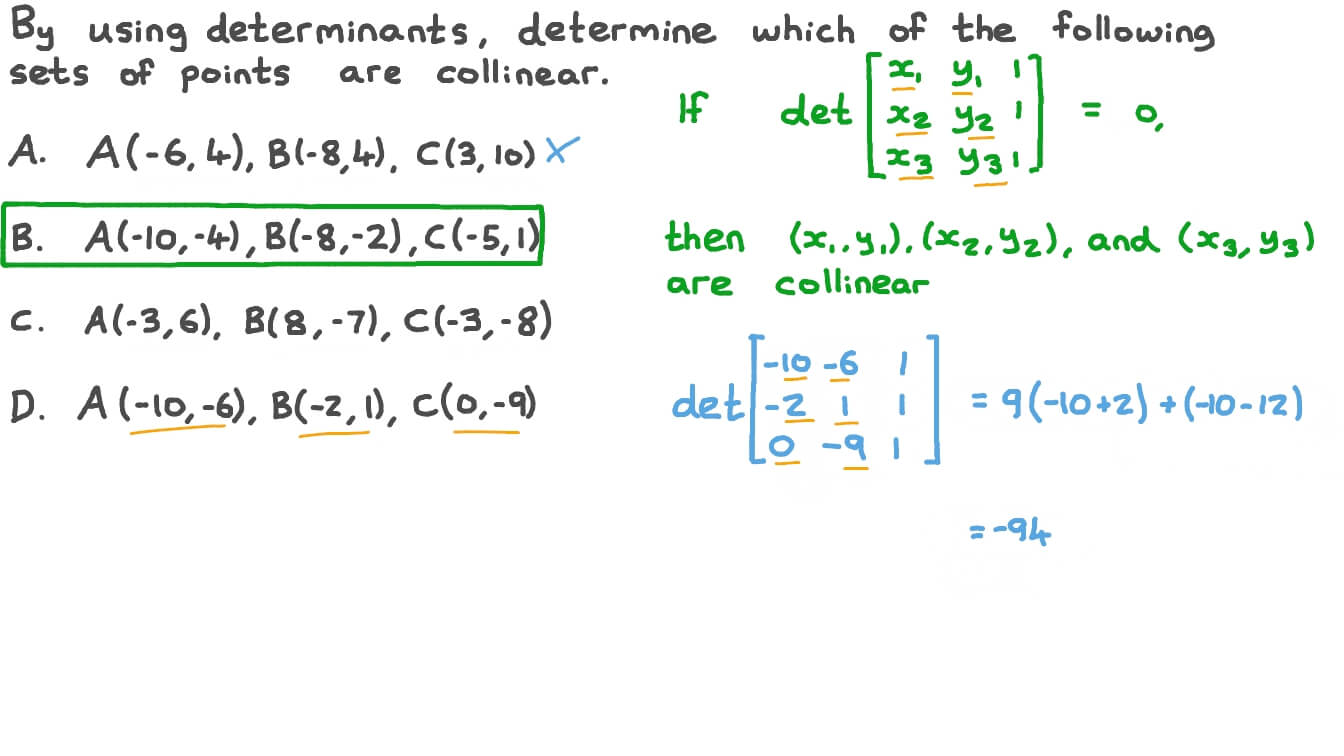 By using determinants, determine which of the following
sets of points are collinear.
A. A(-6, 4), B(-8,4), C(3, 10) ×
B. A(-10,-4), B(-8,-2), C(-5, 1)
C. A(-3,6), B(8, -7), C(-3, -8)
D. A(-10,-6), B(-2, 1), C(0,-9)
If det [x₁ y₁ 1
x₂ y₂ 1
x₃ y₃ 1] = 0,
then (x₁, y₁), (x₂, y₂), and (x₃, y₃)
are collinear
det [-10 -6 1
-2 1 1
0 -9 1] = 9(-10+2) + (-10-12)
= -94